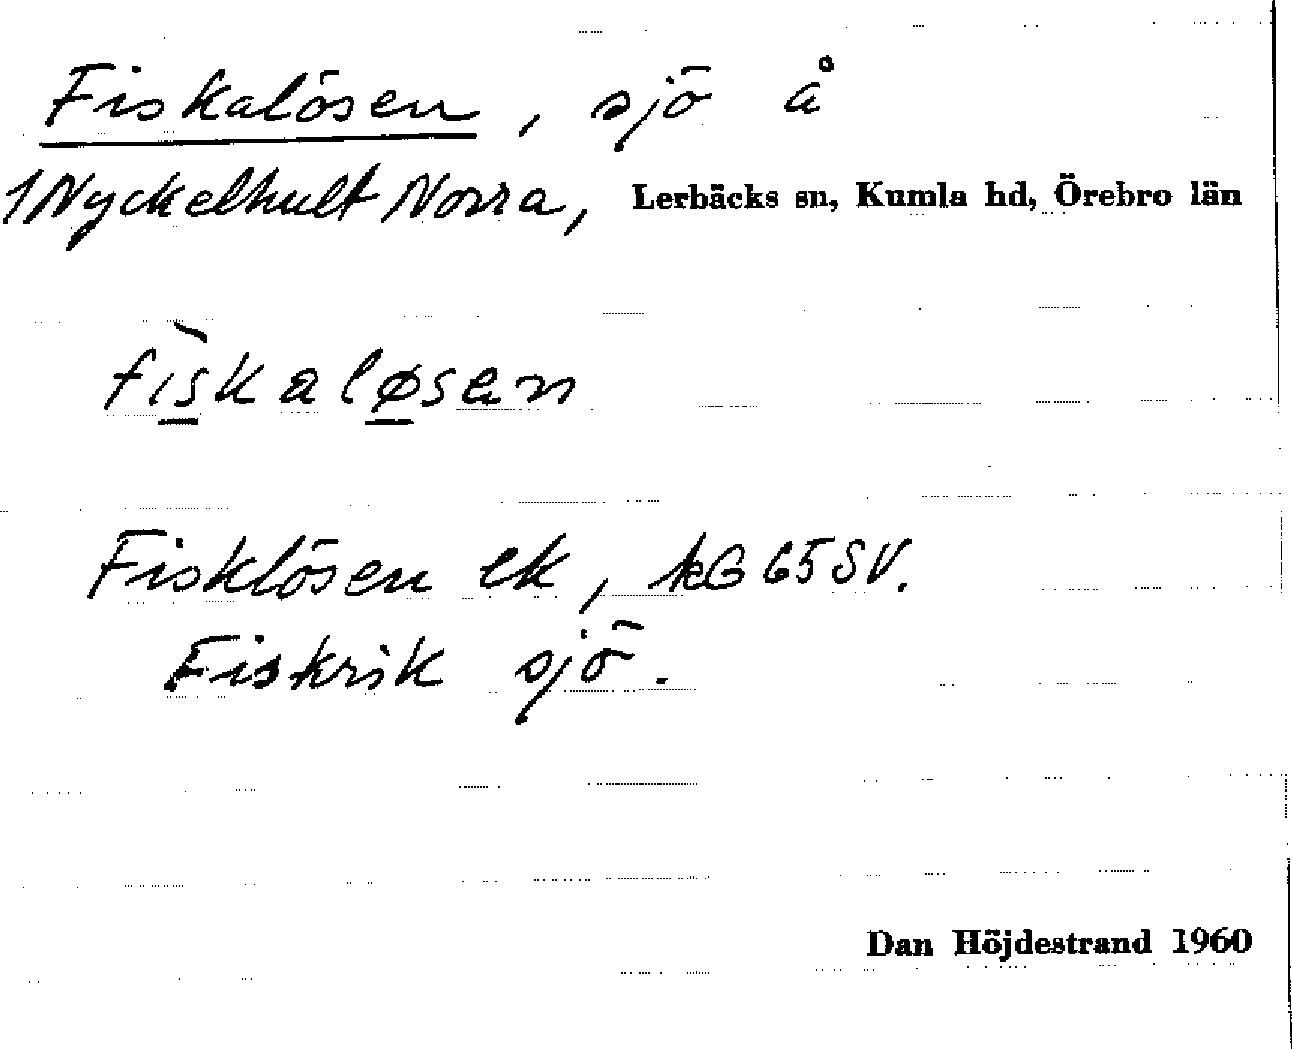 Fiskalösen, sjö å
1 Nyckelhult Norra, Lerbäcks sn, Kumla hd, Örebro län
fìskaløsen
Fisklösen ek, kG 65 SV.
Fiskrik sjö.
Dan Höjdestrand 1960